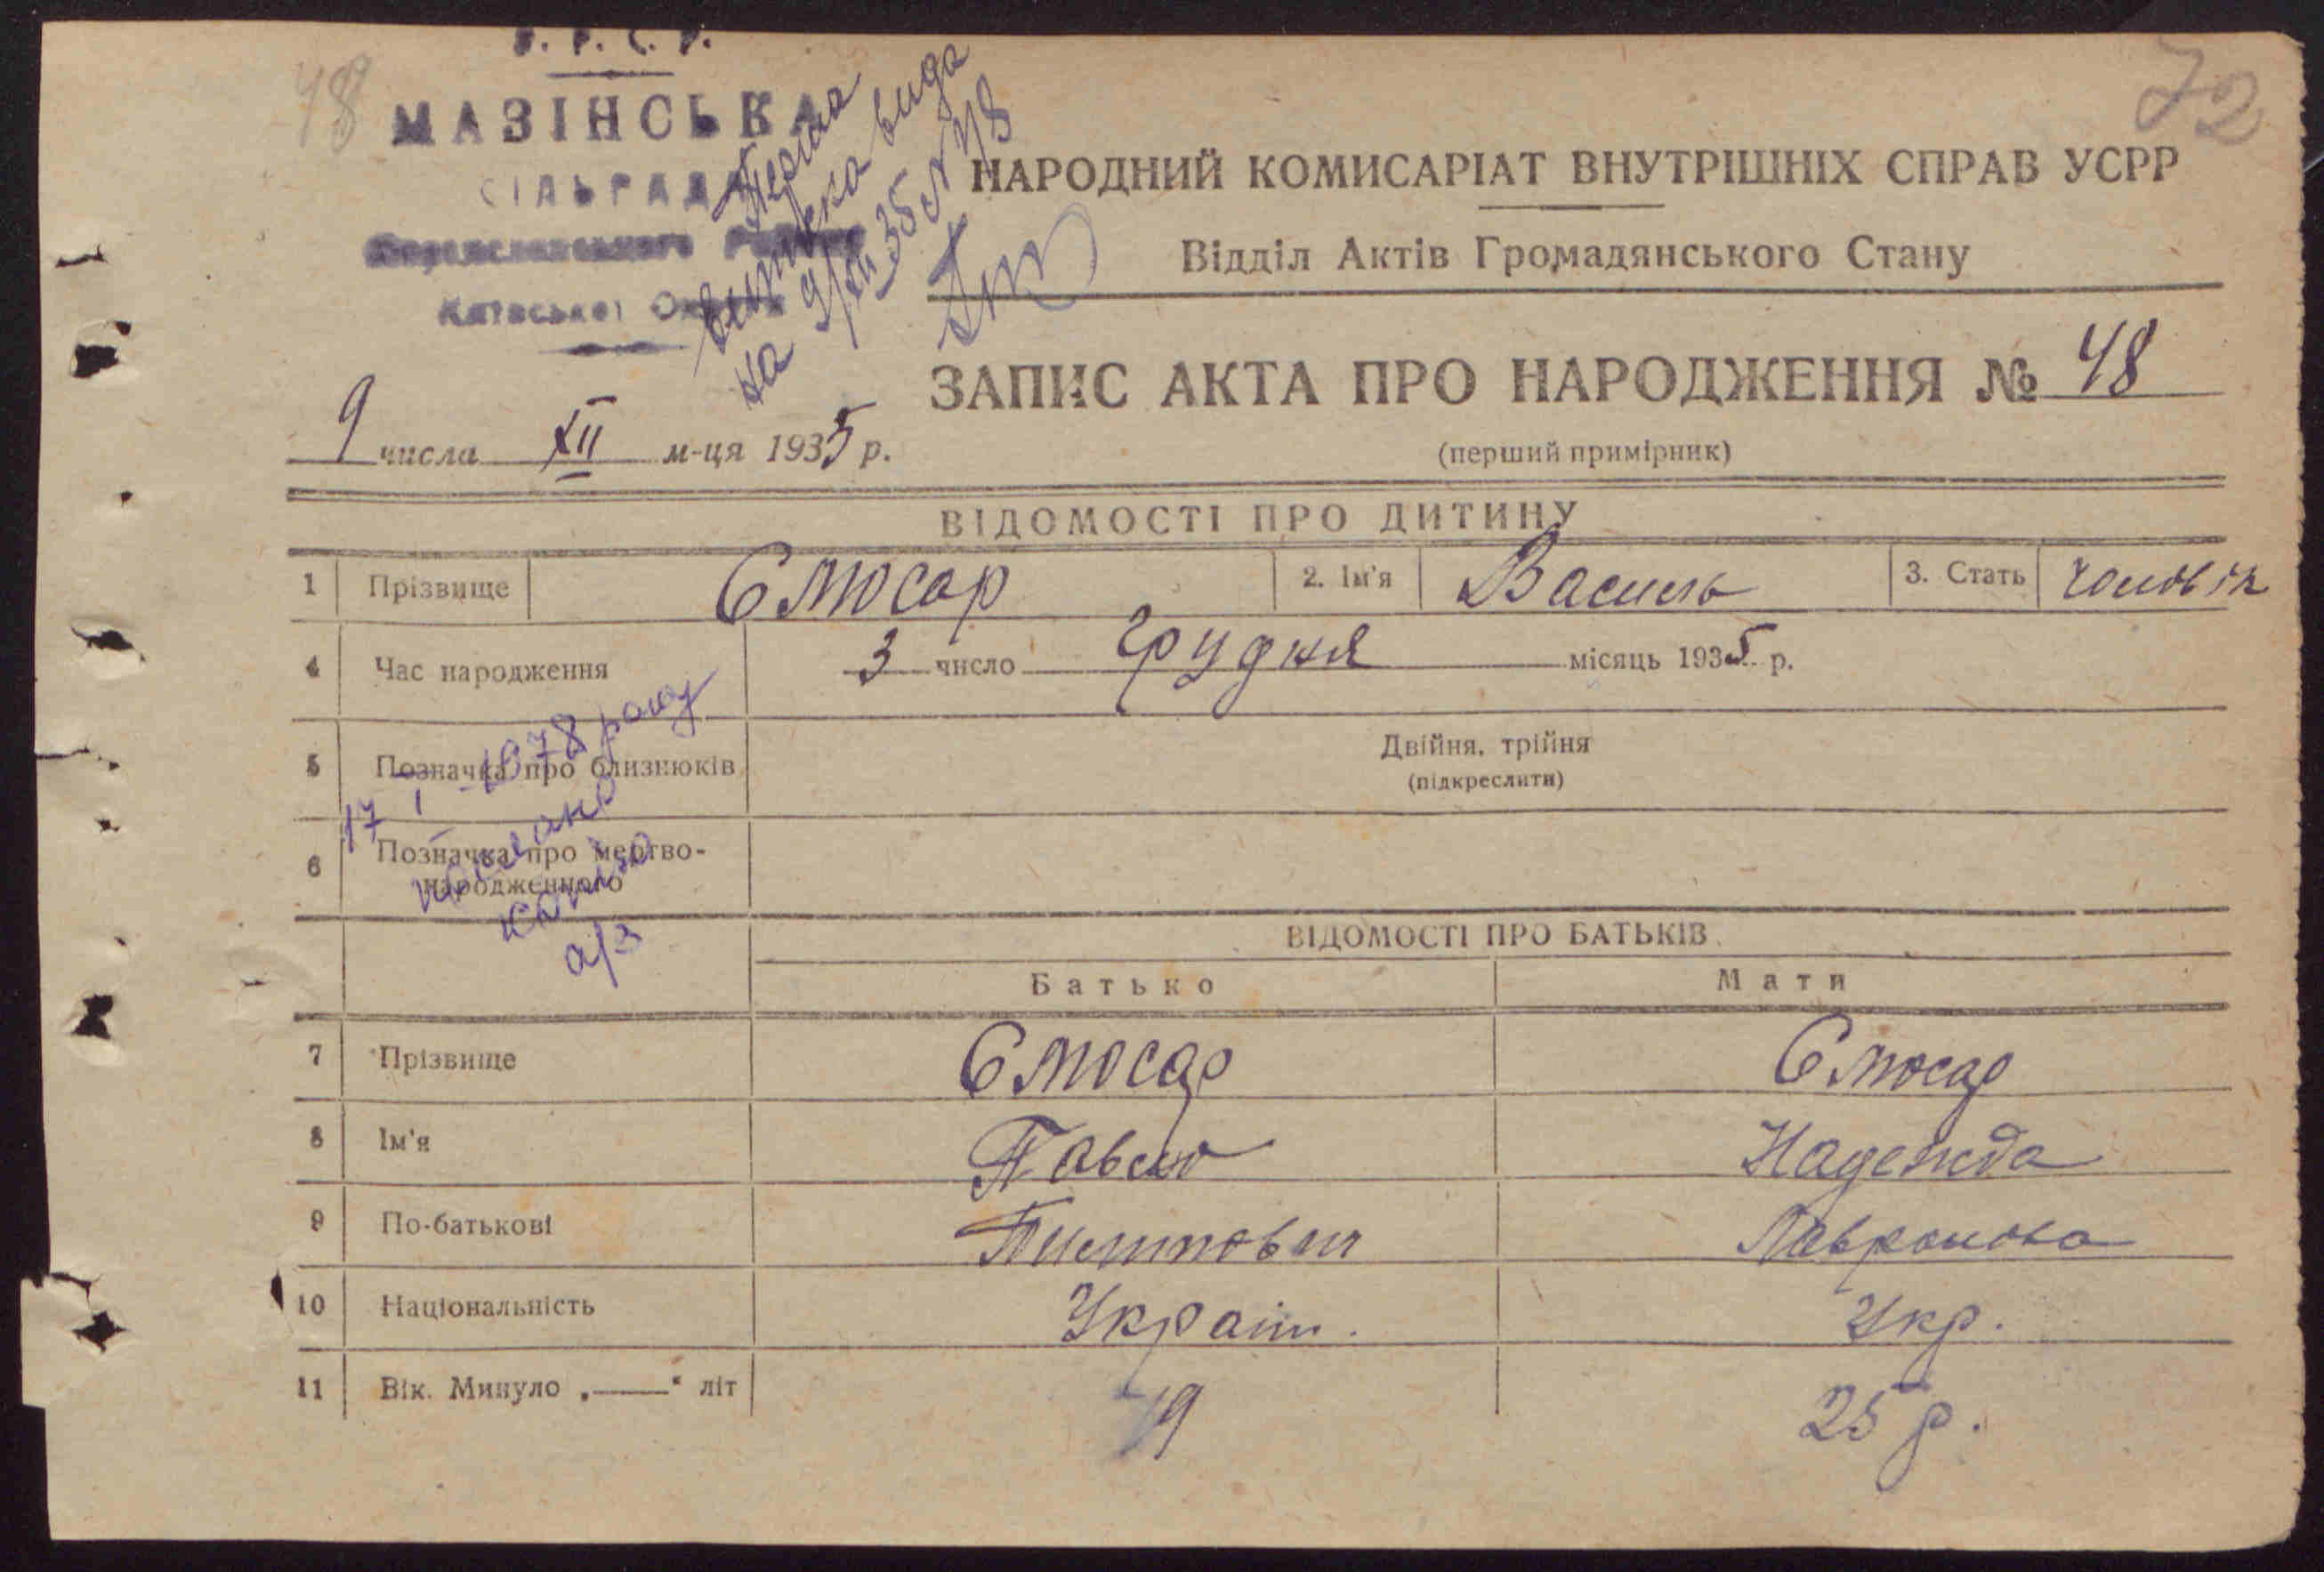 У. Р. С. Р.
МАЗІНСЬКА
СІЛЬРАДА
Переяславського Району
Київської Округи
48
72
Перша
виписка вида
на 9/XII 35 № 48
НАРОДНИЙ КОМИСАРІАТ ВНУТРІШНІХ СПРАВ УСРР
Відділ Актів Громадянського Стану
ЗАПИС АКТА ПРО НАРОДЖЕННЯ № 48
(перший примірник)
9 числа XII м-ця 1935 р.
ВІДОМОСТІ ПРО ДИТИНУ
1 Прізвище Слюсар 2. Ім'я Василь 3. Стать чоловік
4 Час народження 3 число грудня місяць 1935 р.
5 Позначка про близнюків Двійня, трійня
(підкреслити)
6 Позначка про мертво-
народженного
17 I 1978 року
надіслано
копію
а/з
ВІДОМОСТІ ПРО БАТЬКІВ
Батько Мати
7 Прізвище Слюсар Слюсар
8 Ім'я Павло Надежда
9 По-батькові Пилипович
10 Національність Україн. Укр.
11 Вік. Минуло „——“ літ 19 25 р.